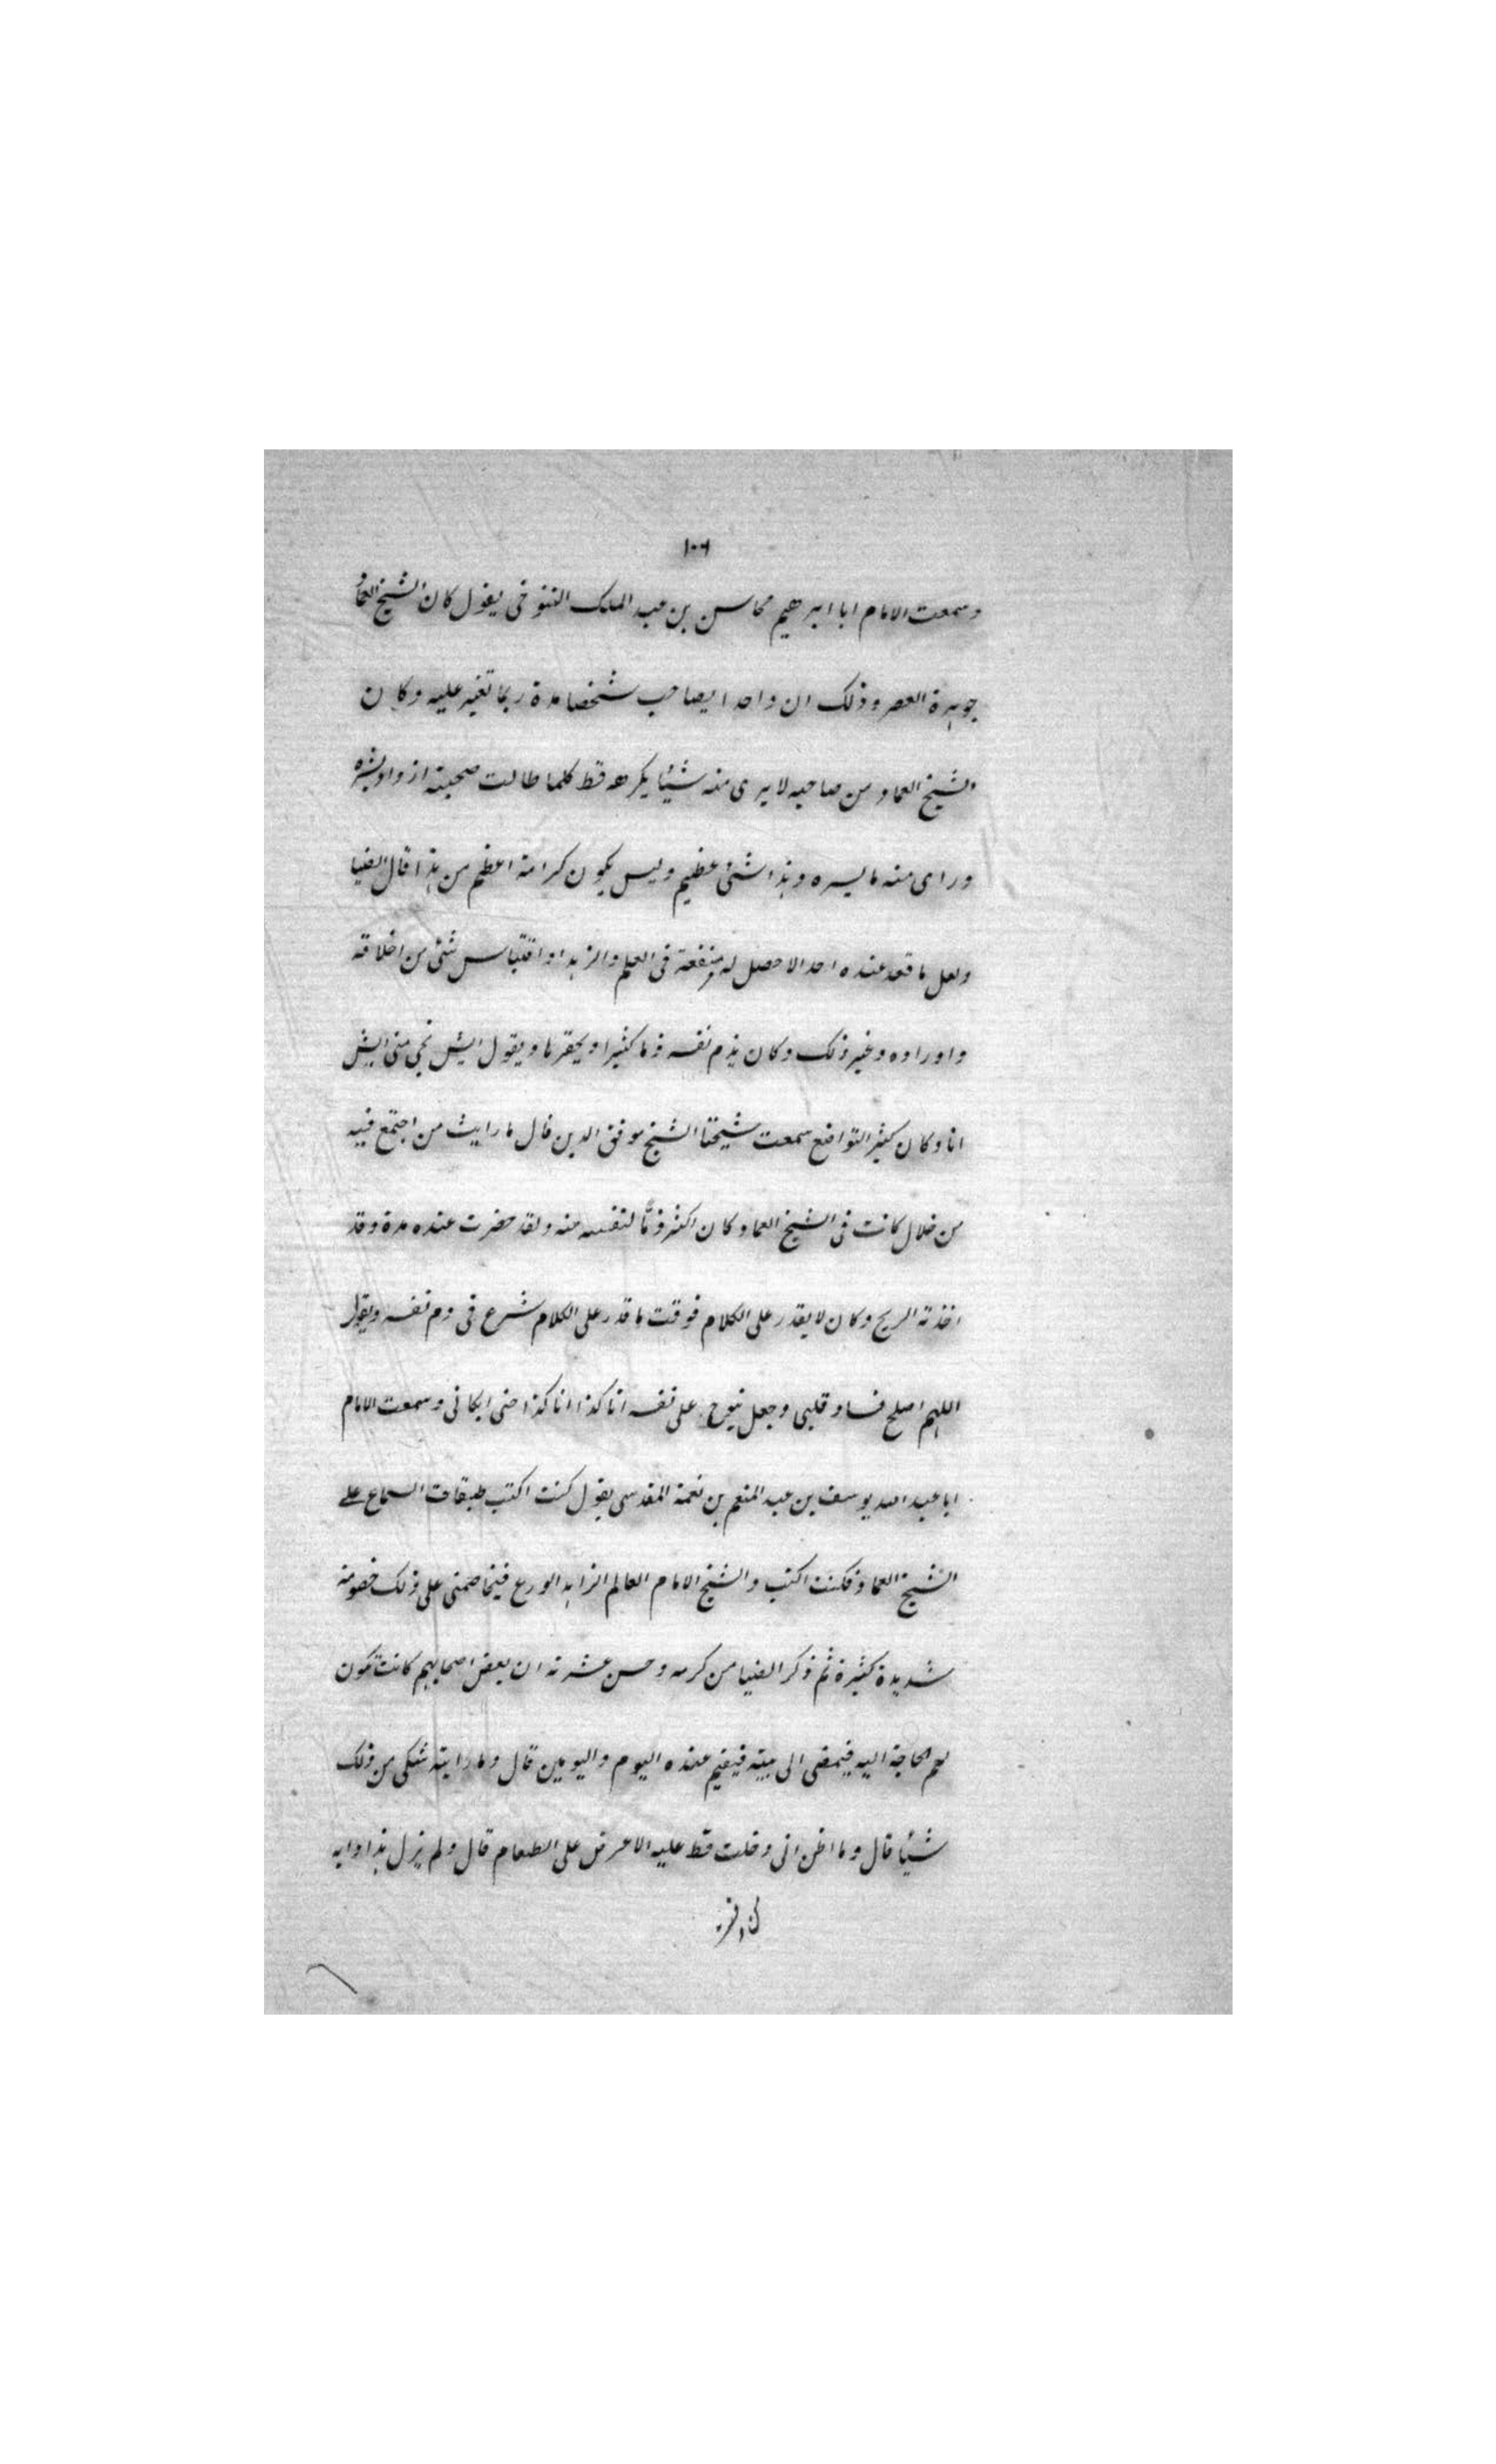 ١٠٦
وسمعت الامام ابا ابراهيم محاسن بن عبد الملك التنوخى يقول كان الشيخ العماد
جوهرة العصر وذلك ان واحدا يصاحب شخصا مدة ربما تغير عليه وكان
الشيخ العماد من صاحبه لا يرى منه شيئا يكرهه قط كلما طالت صحبته ازداد بشره
وراى منه ما يسره وهذا شئ عظيم وليس يكون كرامة اعظم من هذا قال الضيا
ولعل ما قعد عنده احد الا حصل له منفعة فى العلم والزهد او اقتباس شئ من اخلاقه
واوراده وغير ذلك وكان يذم نفسه ذما كثيرا ويحقرها ويقول ايش يجى منى ايش
انا وكان كثير التواضع سمعت شيخنا الشيخ موفق الدين قال ما رايت من اجتمع فيه
من خلال كانت فى الشيخ العماد وكان اكثر ذمًّا لنفسه منه ولقد حضرت عنده مدة وقد
اخذته الريح وكان لا يقدر على الكلام فوقت ما قدر على الكلام شرع فى ذم نفسه ويقول
اللهم اصلح فساد قلبى وجعل ينوح على نفسه انا كذا انا كذا حتى ابكانى وسمعت الامام
ابا عبد الله يوسف بن عبد المنعم بن نعمة المقدسى يقول كنت اكتب طبقات السماع على
الشيخ العماد فكنت اكتب والشيخ الامام العالم الزاهد الورع فيخاصمنى على ذلك خصومة
شديدة كثيرة ثم ذكر الضيا من كرمه وحسن عشرته ان بعض اصحابهم كانت تكون
لهم الحاجة اليه فيمضى الى بيته فيقيم عنده اليوم واليومين قال وما رايته شكى من ذلك
شيئا قال وما اظن انى دخلت قط عليه الا عرض على الطعام قال ولم يزل هذا دابه